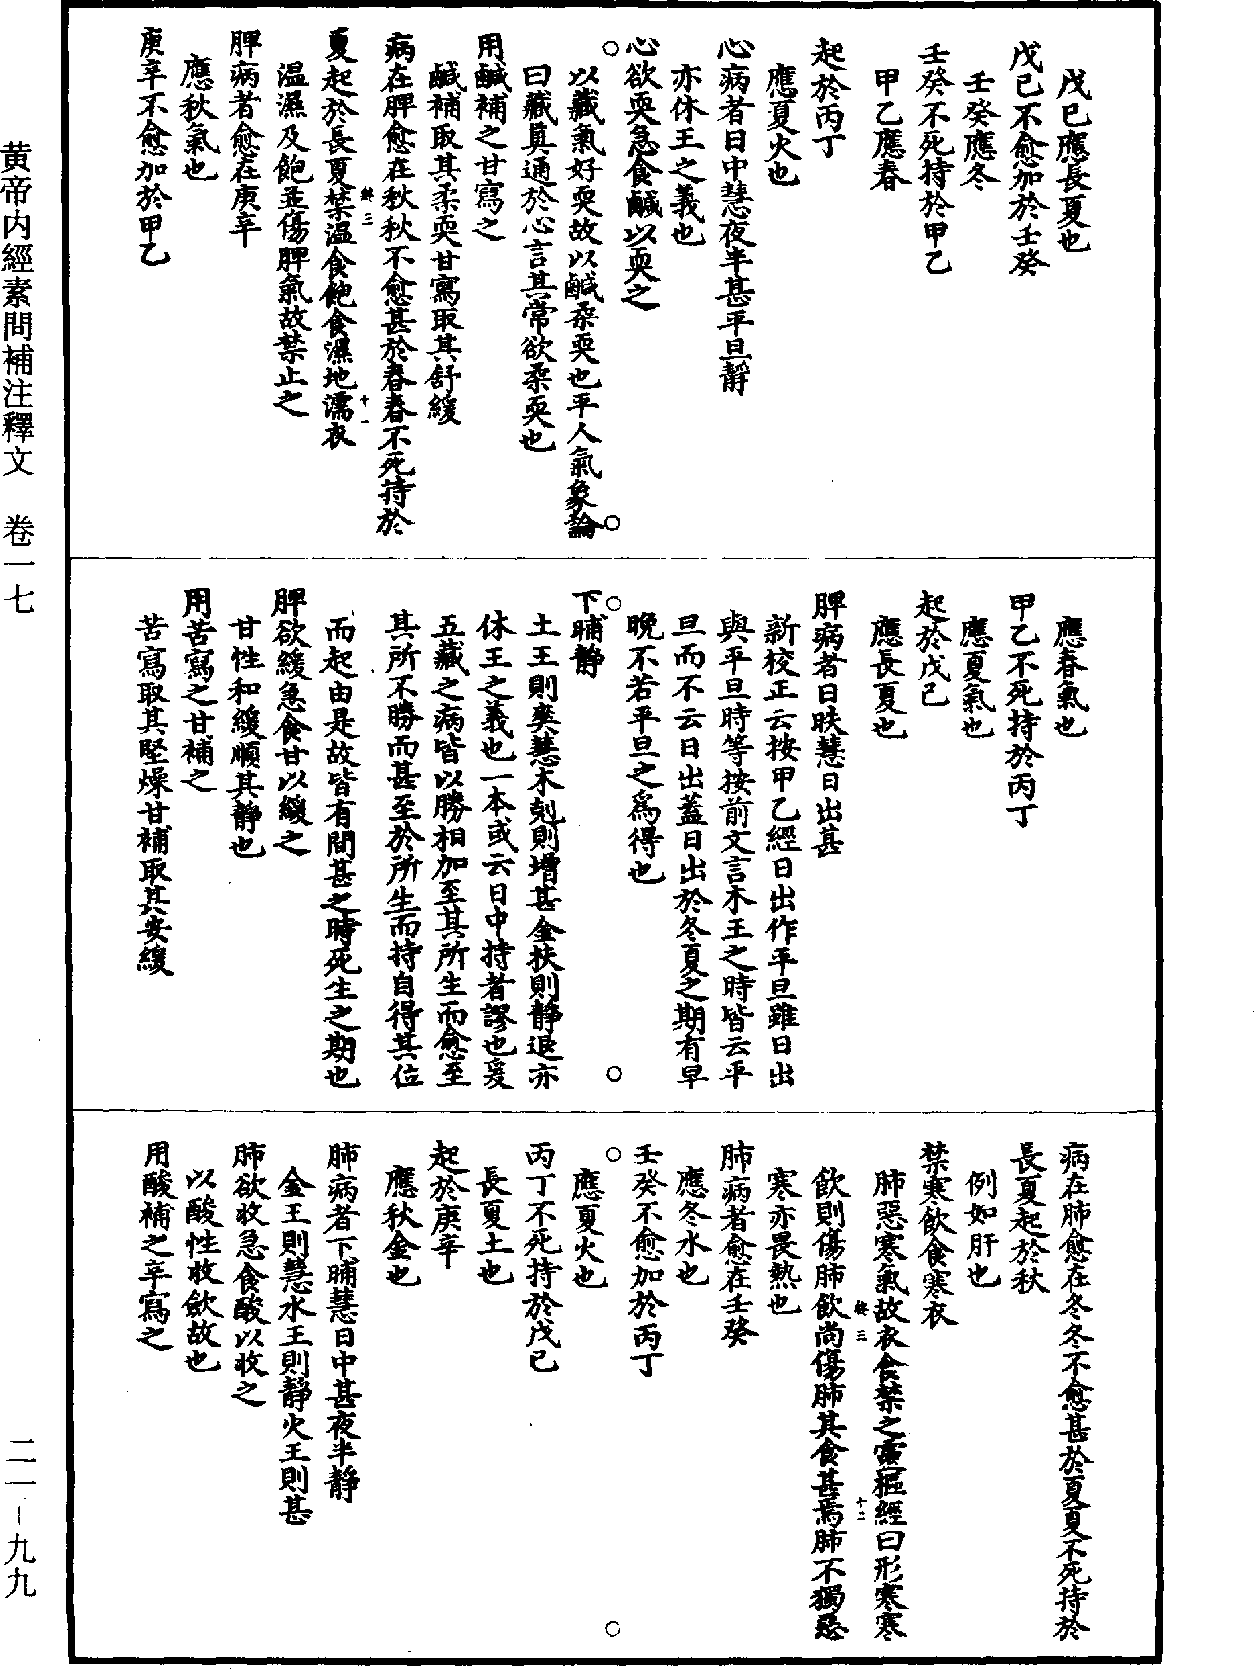 戊巳應長夏也
戊巳不愈加於壬癸
壬癸應冬
壬癸不死持於甲乙
甲乙應春
起於丙丁
應夏火也
心病者日中慧夜半甚平旦靜
亦休王之義也
心欲耎急食鹹以耎之
以藏氣好耎故以鹹柔耎也平人氣象論
曰藏真通於心言其常欲柔耎也
用鹹補之甘寫之
鹹補取其柔耎甘寫取其舒緩
病在脾愈在秋秋不愈甚於春春不死持於
夏起於長夏禁温食飽食濕地濡衣
温濕及飽並傷脾氣故禁止之
脾病者愈在庚辛
應秋氣也
庚辛不愈加於甲乙
應春氣也
甲乙不死持於丙丁
應夏氣也
起於戊巳
應長夏也
脾病者日昳慧日出甚
新校正云按甲乙經日出作平旦雖日出
與平旦時等按前文言木王之時皆云平
旦而不云日出蓋日出於冬夏之期有早
晚不若平旦之爲得也
下晡靜
土王則爽慧木剋則增甚金扶則靜退亦
休王之義也一本或云日中持者謬也爰
五藏之病皆以勝相加至其所生而愈至
其所不勝而甚至於所生而持自得其位
而起由是故皆有間甚之時死生之期也
脾欲緩急食甘以緩之
甘性和緩順其靜也
用苦寫之甘補之
苦寫取其堅燥甘補取其安緩
病在肺愈在冬冬不愈甚於夏夏不死持於
長夏起於秋
例如肝也
禁寒飲食寒衣
肺惡寒氣故衣食禁之靈樞經曰形寒寒
飲則傷肺飲尚傷肺其食甚焉肺不獨惡
寒亦畏熱也
肺病者愈在壬癸
應冬水也
壬癸不愈加於丙丁
應夏火也
丙丁不死持於戊巳
長夏土也
起於庚辛
應秋金也
肺病者下晡慧日中甚夜半靜
金王則慧水王則靜火王則甚
肺欲收急食酸以收之
以酸性收斂故也
用酸補之辛寫之
黄帝内經素問補注釋文 卷一七
二一—九九